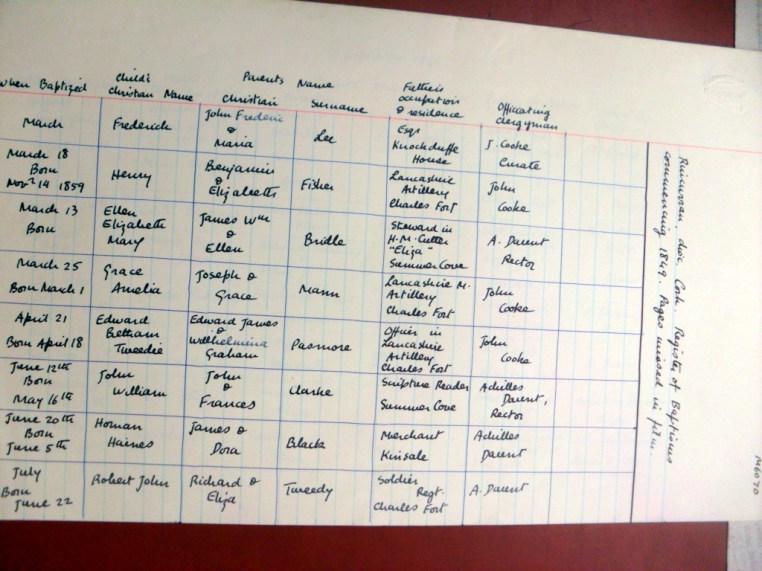 When Baptized Child's Christian Name Parents Name Christian Surname Father's occupation & residence Officiating clergyman
March Frederick John Frederic & Maria Lee Esqr Knockduffe House J. Cooke Curate
March 18 Born Novr 14 1859 Henry Benjamin & Elizabeth Fisher Lancashire Artillery Charles Fort John Cooke
March 13 Born Ellen Elizabeth Mary James Wm & Ellen Bridle Steward in H.M. Cutter "Eliza" Summer Cove A. Daunt Rector
March 25 Born March 1 Grace Amelia Joseph & Grace Mann Lancashire M. Artillery Charles Fort John Cooke
April 21 Born April 18 Edward Tweedie Edward James & Willhelmina Graham Pasmore Officer in Lancashire Artillery Charles Fort John Cooke
June 12th Born May 16th John William John & Frances Clarke Scripture Reader Summer Cove Achilles Daunt, Rector
June 20th Born June 5th Homan Haines James & Dora Black Merchant Kinsale Achilles Daunt
July Born June 22 Robert John Richard & Eliza Tweedy Soldier Regt. Charles Fort A. Daunt
Rincurran. dioc. Cork. Register of Baptisms
commencing 1849. Pages missed in film.
M6070